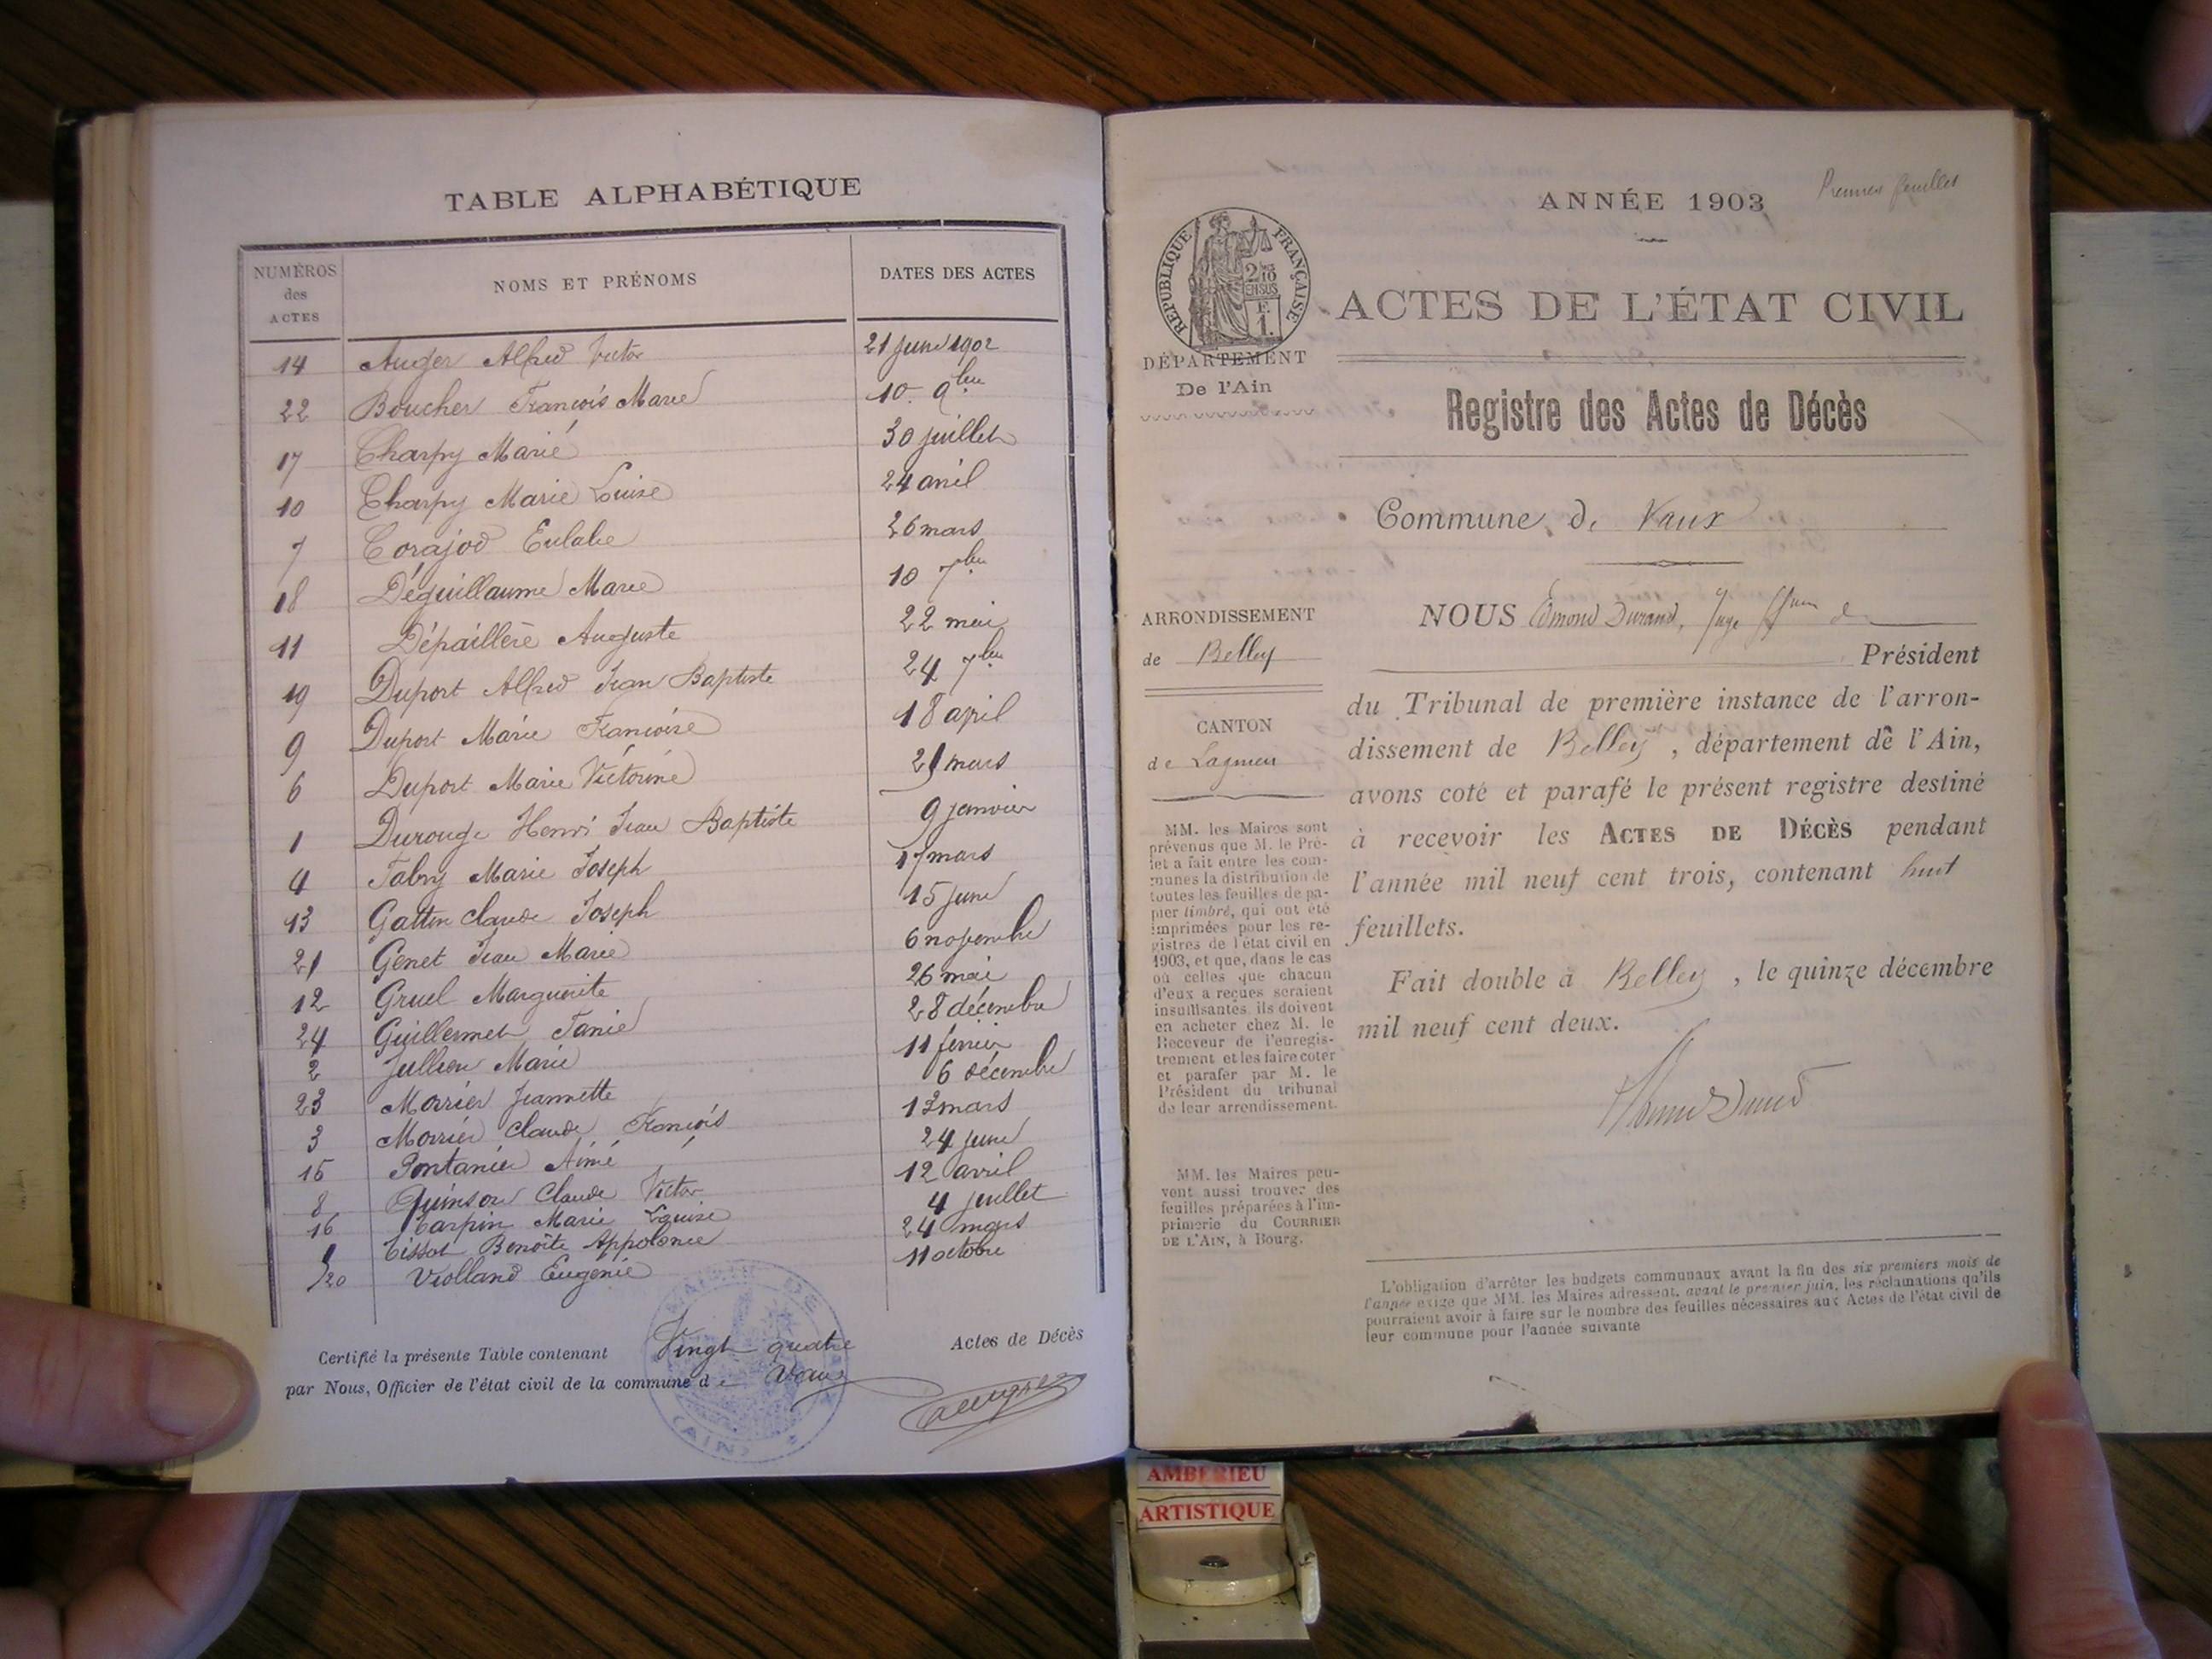 TABLE ALPHABÉTIQUE
NUMÉROS des ACTES NOMS ET PRÉNOMS DATES DES ACTES
14 Auger Alfred Victor 21 juin 1902
22 Boucher François Marie 10 9bre
17 Charpy Marie 30 juillet
10 Charpy Marie Louise 24 avril
7 Corajod Eulalie 26 mars
18 Déguillaume Marie 10 7bre
11 Dépaillère Auguste 22 mai
19 Duport Alfred Jean Baptiste 24 7bre
9 Duport Marie Françoise 18 avril
6 Duport Marie Victorine 21 mars
1 Durouge Henri Jean Baptiste 9 janvier
4 Fabry Marie Joseph 17 mars
13 Gattin Claude Joseph 15 juin
21 Genet Jean Marie 6 novembre
12 Gruel Marguerite 26 mai
24 Guillermet Fanie 28 décembre
2 Jullien Marie 11 février
23 Morrier Jeannette 6 décembre
3 Morrier Claude François 13 mars
15 Pontanier Aimé 24 juin
8 Quinson Claude Victor 12 avril
16 Tarpin Marie Louise 4 juillet
Tissot Benoîte Appolonie 24 mars
20 Violland Eugénie 11 octobre
Certifié la présente Table contenant Vingt quatre Actes de Décès
par Nous, Officier de l'état civil de la commune de Vaux
(AIN)
Premier feuillet
ANNÉE 1903
RÉPUBLIQUE FRANÇAISE
ACTES DE L'ÉTAT CIVIL
DÉPARTEMENT
De l'Ain
Registre des Actes de Décès
Commune de Vaux
ARRONDISSEMENT
de Belley
CANTON
de Lagnieu
MM. les Maires sont
prévenus que M. le Pré-
fet a fait entre les com-
munes la distribution de
toutes les feuilles de pa-
pier timbré, qui ont été
imprimées pour les re-
gistres de l'état civil en
1903, et que, dans le cas
où celles que chacun
d'eux a reçues seraient
insuffisantes, ils doivent
en acheter chez M. le
Receveur de l'enregis-
trement et les faire coter
et parafer par M. le
Président du tribunal
de leur arrondissement.
MM. les Maires peu-
vent aussi trouver des
feuilles préparées à l'im-
primerie du COURRIER
DE L'AIN, à Bourg.
NOUS Edmond Durand, Juge ffon de
Président
du Tribunal de première instance de l'arron-
dissement de Belley, département de l'Ain,
avons coté et parafé le présent registre destiné
à recevoir les ACTES DE DÉCÈS pendant
l'année mil neuf cent trois, contenant huit
feuillets.
Fait double à Belley, le quinze décembre
mil neuf cent deux.
L'obligation d'arrêter les budgets communaux avant la fin des six premiers mois de
l'année exige que MM. les Maires adressent, avant le premier juin, les réclamations qu'ils
pourraient avoir à faire sur le nombre des feuilles nécessaires aux Actes de l'état civil de
leur commune pour l'année suivante
AMBERIEU
ARTISTIQUE